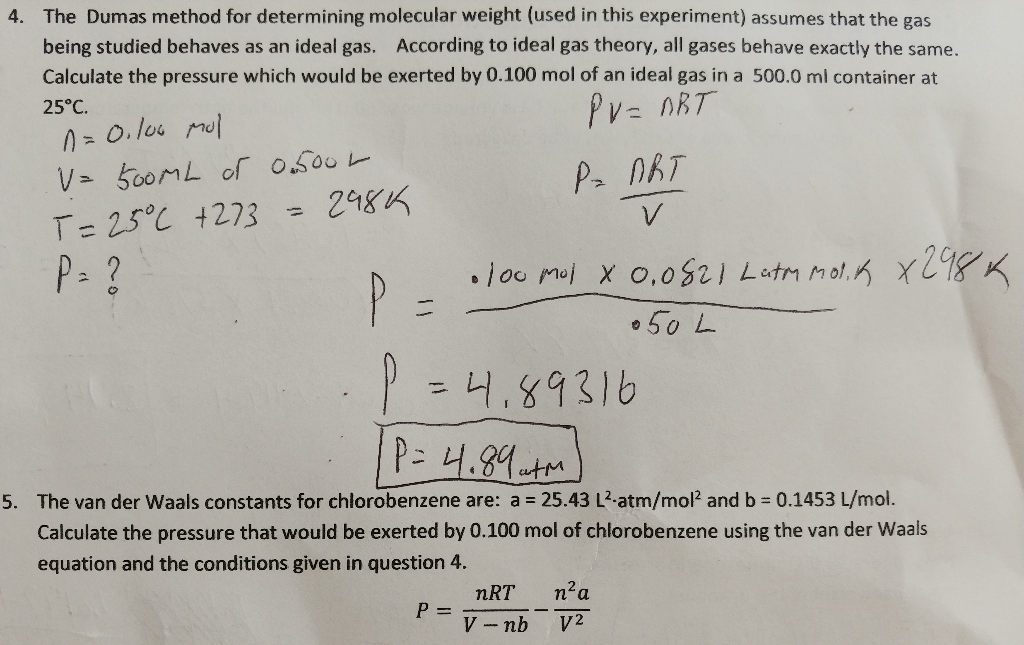 4. The Dumas method for determining molecular weight (used in this experiment) assumes that the gas
being studied behaves as an ideal gas. According to ideal gas theory, all gases behave exactly the same.
Calculate the pressure which would be exerted by 0.100 mol of an ideal gas in a 500.0 ml container at
25°C.
PV = nRT
n = 0.100 mol
V = 500mL or 0.500 L
P = nRT
V
T = 25°C +273 = 298K
P = ?
P = .100 mol x 0.0821 Latm mol.K x 298 K
.50 L
P = 4.89316
P = 4.89 atm
5. The van der Waals constants for chlorobenzene are: a = 25.43 L²·atm/mol² and b = 0.1453 L/mol.
Calculate the pressure that would be exerted by 0.100 mol of chlorobenzene using the van der Waals
equation and the conditions given in question 4.
P = nRT / V − nb − n²a / V²